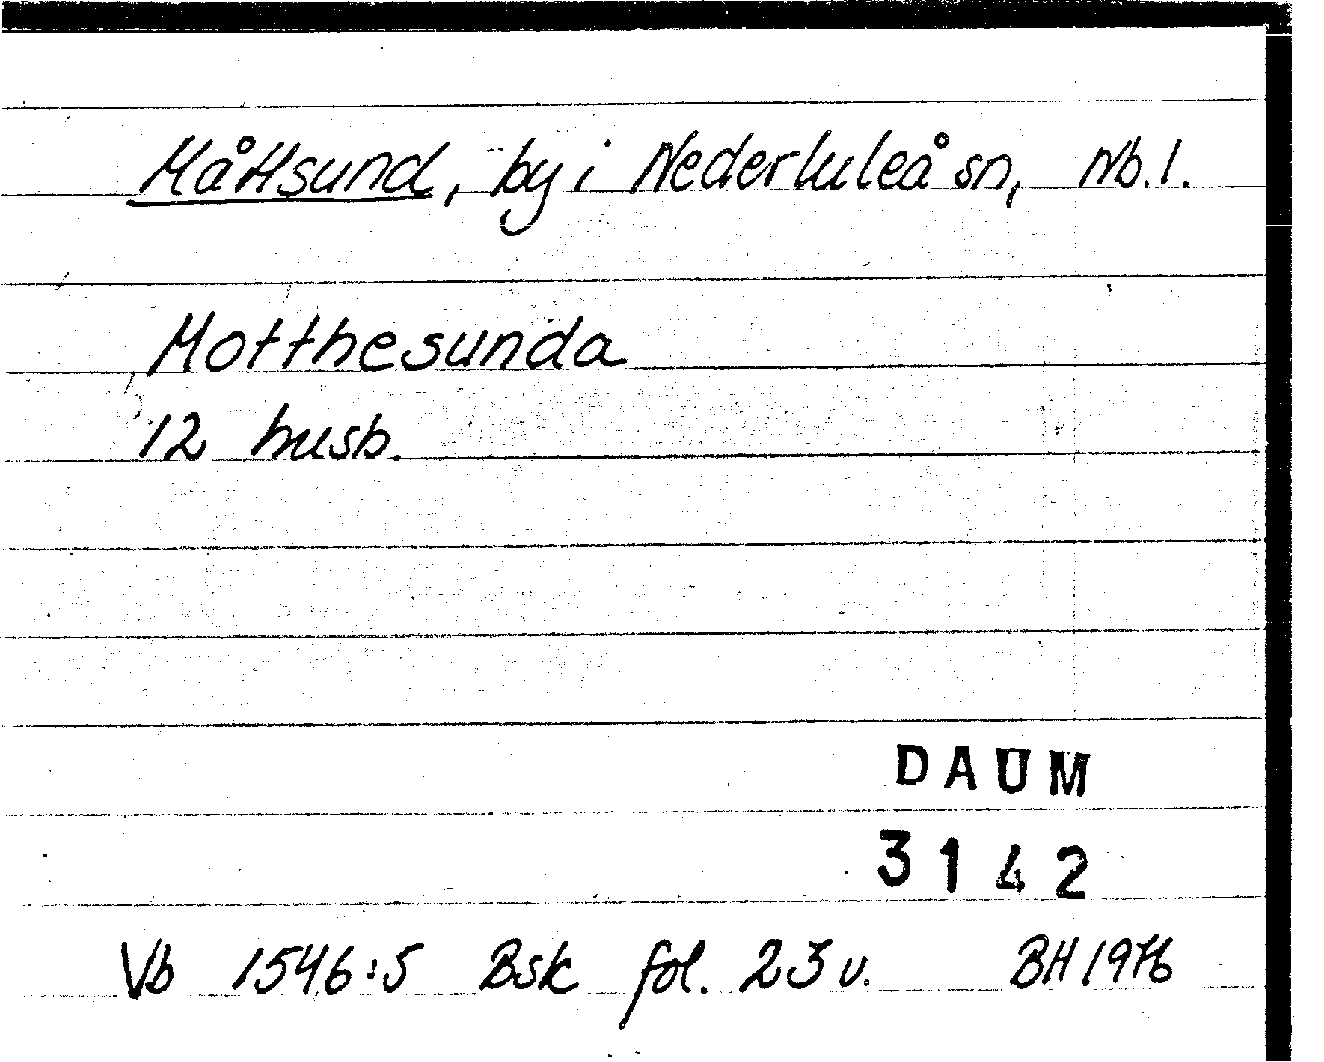 Måttsund, by i Nederluleå sn, Nb.l.
Motthesunda
12 husb.
DAUM
3142
Vb 1546:5 Bsk fol. 23 v. BH 1976